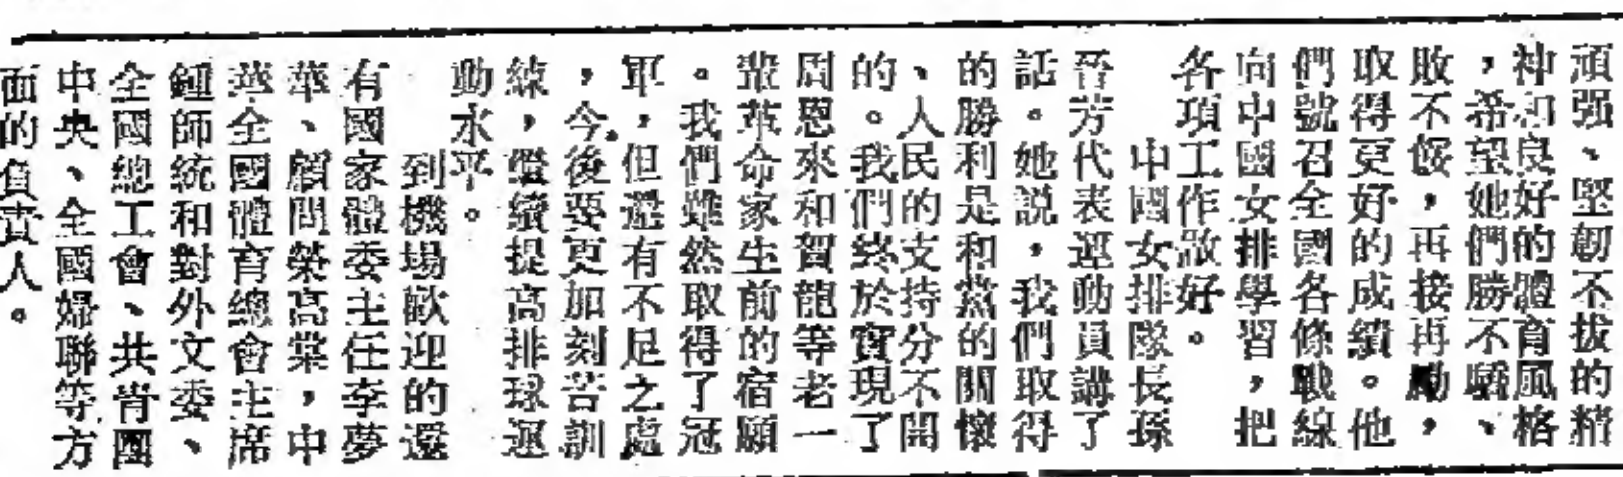 頑强、堅韌不拔的精
神和良好的體育風格
，希望她們勝不驕、
敗不餒，再接再勵，
取得更好的成績。他
們號召全國各條戰線
向中國女排學習，把
各項工作做好。
中國女排隊長孫
晉芳代表運動員講了
話。她説，我們取得
的勝利是和黨的關懷
、人民的支持分不開
的。我們終於實現了
周恩來和賀龍等老一
輩革命家生前的宿願
。我們雖然取得了冠
軍，但還有不足之處
，今後要更加刻苦訓
練，繼續提高排球運
動水平。
到機場歡迎的還
有國家體委主任李夢
華、顧問榮高棠，中
華全國體育總會主席
鍾師統和對外文委、
全國總工會、共青團
中央、全國婦聯等方
面的負責人。